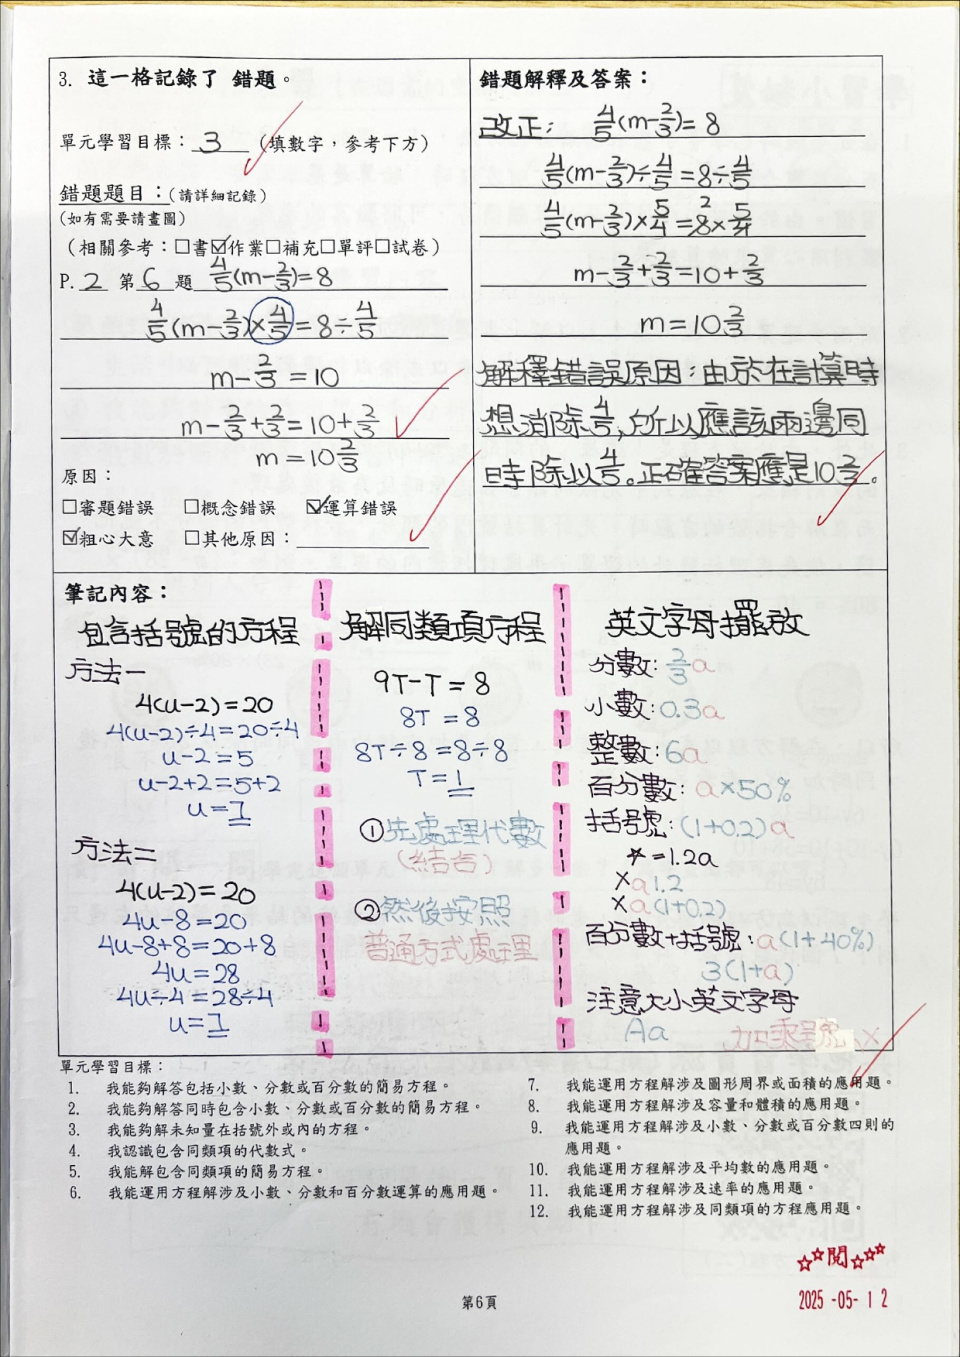 3. 這一格記錄了 錯題。
單元學習目標：3 (填數字，參考下方)
錯題題目：(請詳細記錄)
(如有需要請畫圖)
(相關參考：□書☑作業□補充□單評□試卷)
P. 2 第 6 題 4/5(m-2/3)=8
4/5(m-2/3)×4/5=8÷4/5
m-2/3=10
m-2/3+2/3=10+2/3
m=10 2/3
原因：
□審題錯誤 □概念錯誤 ☑運算錯誤
☑粗心大意 □其他原因：
錯題解釋及答案：
改正： 4/5(m-2/3)=8
4/5(m-2/3)÷4/5=8÷4/5
4/5(m-2/3)×5/4=8×5/4
2
m-2/3+2/3=10+2/3
m=10 2/3
解釋錯誤原因：由於在計算時
想消除4/5，所以應該兩邊同
時除以4/5。正確答案應是10 2/3。
筆記內容：
包含括號的方程
方法一
4(u-2)=20
4(u-2)÷4=20÷4
u-2=5
u-2+2=5+2
u=7
方法二
4(u-2)=20
4u-8=20
4u-8+8=20+8
4u=28
4u÷4=28÷4
u=7
解同類項方程
9T-T=8
8T=8
8T÷8=8÷8
T=1
①先處理代數
(結合)
②然後按照
普通方式處理
英文字母擺放
分數：2/3a
小數：0.3a
整數：6a
百分數：a×50%
括號：(1+0.2)a
*=1.2a
×a1.2
×a(1+0.2)
百分數+括號：a(1+40%)
3(1+a)
注意大小英文字母
Aa 加乘號 ×
單元學習目標：
1. 我能夠解答包括小數、分數或百分數的簡易方程。
2. 我能夠解答同時包含小數、分數或百分數的簡易方程。
3. 我能夠解未知量在括號外或內的方程。
4. 我認識包含同類項的代數式。
5. 我能解包含同類項的簡易方程。
6. 我能運用方程解涉及小數、分數和百分數運算的應用題。
7. 我能運用方程解涉及圖形周界或面積的應用題。
8. 我能運用方程解涉及容量和體積的應用題。
9. 我能運用方程解涉及小數、分數或百分數四則的
應用題。
10. 我能運用方程解涉及平均數的應用題。
11. 我能運用方程解涉及速率的應用題。
12. 我能運用方程解涉及同類項的方程應用題。
☆☆閱☆☆☆
2025-05-12
第6頁